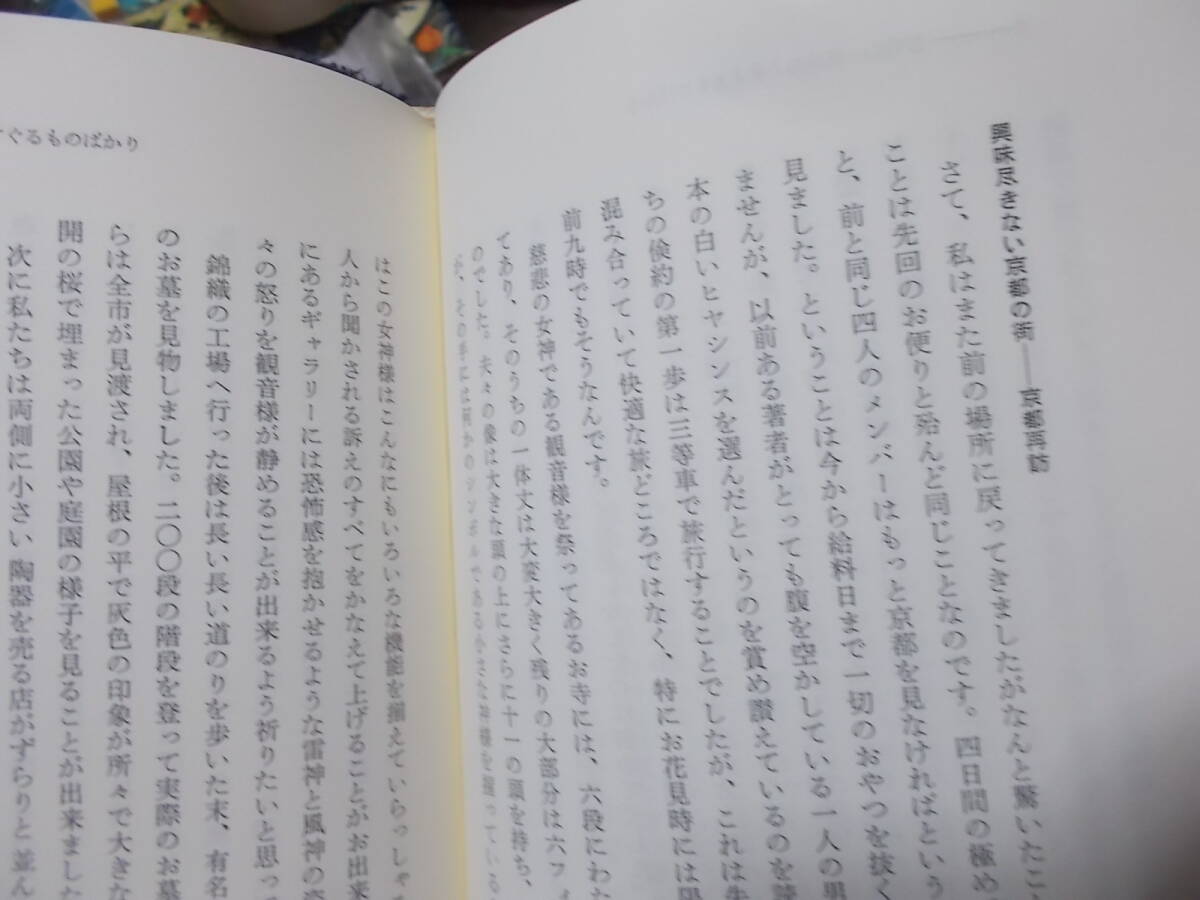 興味尽きない京都の街——京都再訪
さて、私はまた前の場所に戻ってきましたがなんと驚いたこ
ことは先回のお便りと殆んど同じことなのです。四日間の極め
と、前と同じ四人のメンバーはもっと京都を見なければという
見ました。ということは今から給料日まで一切のおやつを抜く
ませんが、以前ある著者がとっても腹を空かしている一人の男
本の白いヒヤシンスを選んだというのを賞め讃えているのを読
ちの倹約の第一歩は三等車で旅行することでしたが、これは失
混み合っていて快適な旅どころではなく、特にお花見時には
前九時でもそうなんです。
慈悲の女神である観音様を祭ってあるお寺には、六段にわた
てあり、そのうちの一体丈は大変大きく残りの大部分は六フィ
のでした。夫々の像は大きな頭の上にさらに十一の頭を持ち、
が、その手には何かのシンボルである小さな神様を現っている
ぐるものばかり
はこの女神様はこんなにもいろいろな機能を揃えていらっしゃ
人から聞かされる訴えのすべてをかなえて上げることがお出来
にあるギャラリーには恐怖感を抱かせるような雷神と風神の姿
々の怒りを観音様が静めることが出来るよう祈りたいと思っ
錦織の工場へ行った後は長い長い道のりを歩いた末、有名
のお墓を見物しました。二〇〇段の階段を登って実際のお墓
らは全市が見渡され、屋根の平で灰色の印象が所々で大きな
開の桜で埋まった公園や庭園の様子を見ることが出来ました
次に私たちは両側に小さい陶器を売る店がずらりと並ん